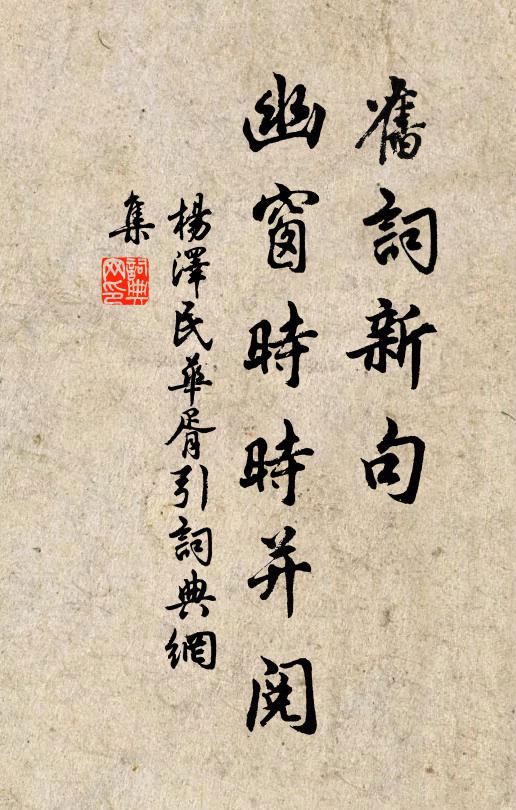 舊詞新句
幽窗時時并閱
楊澤民華胥引詞典網
集
詞典網印